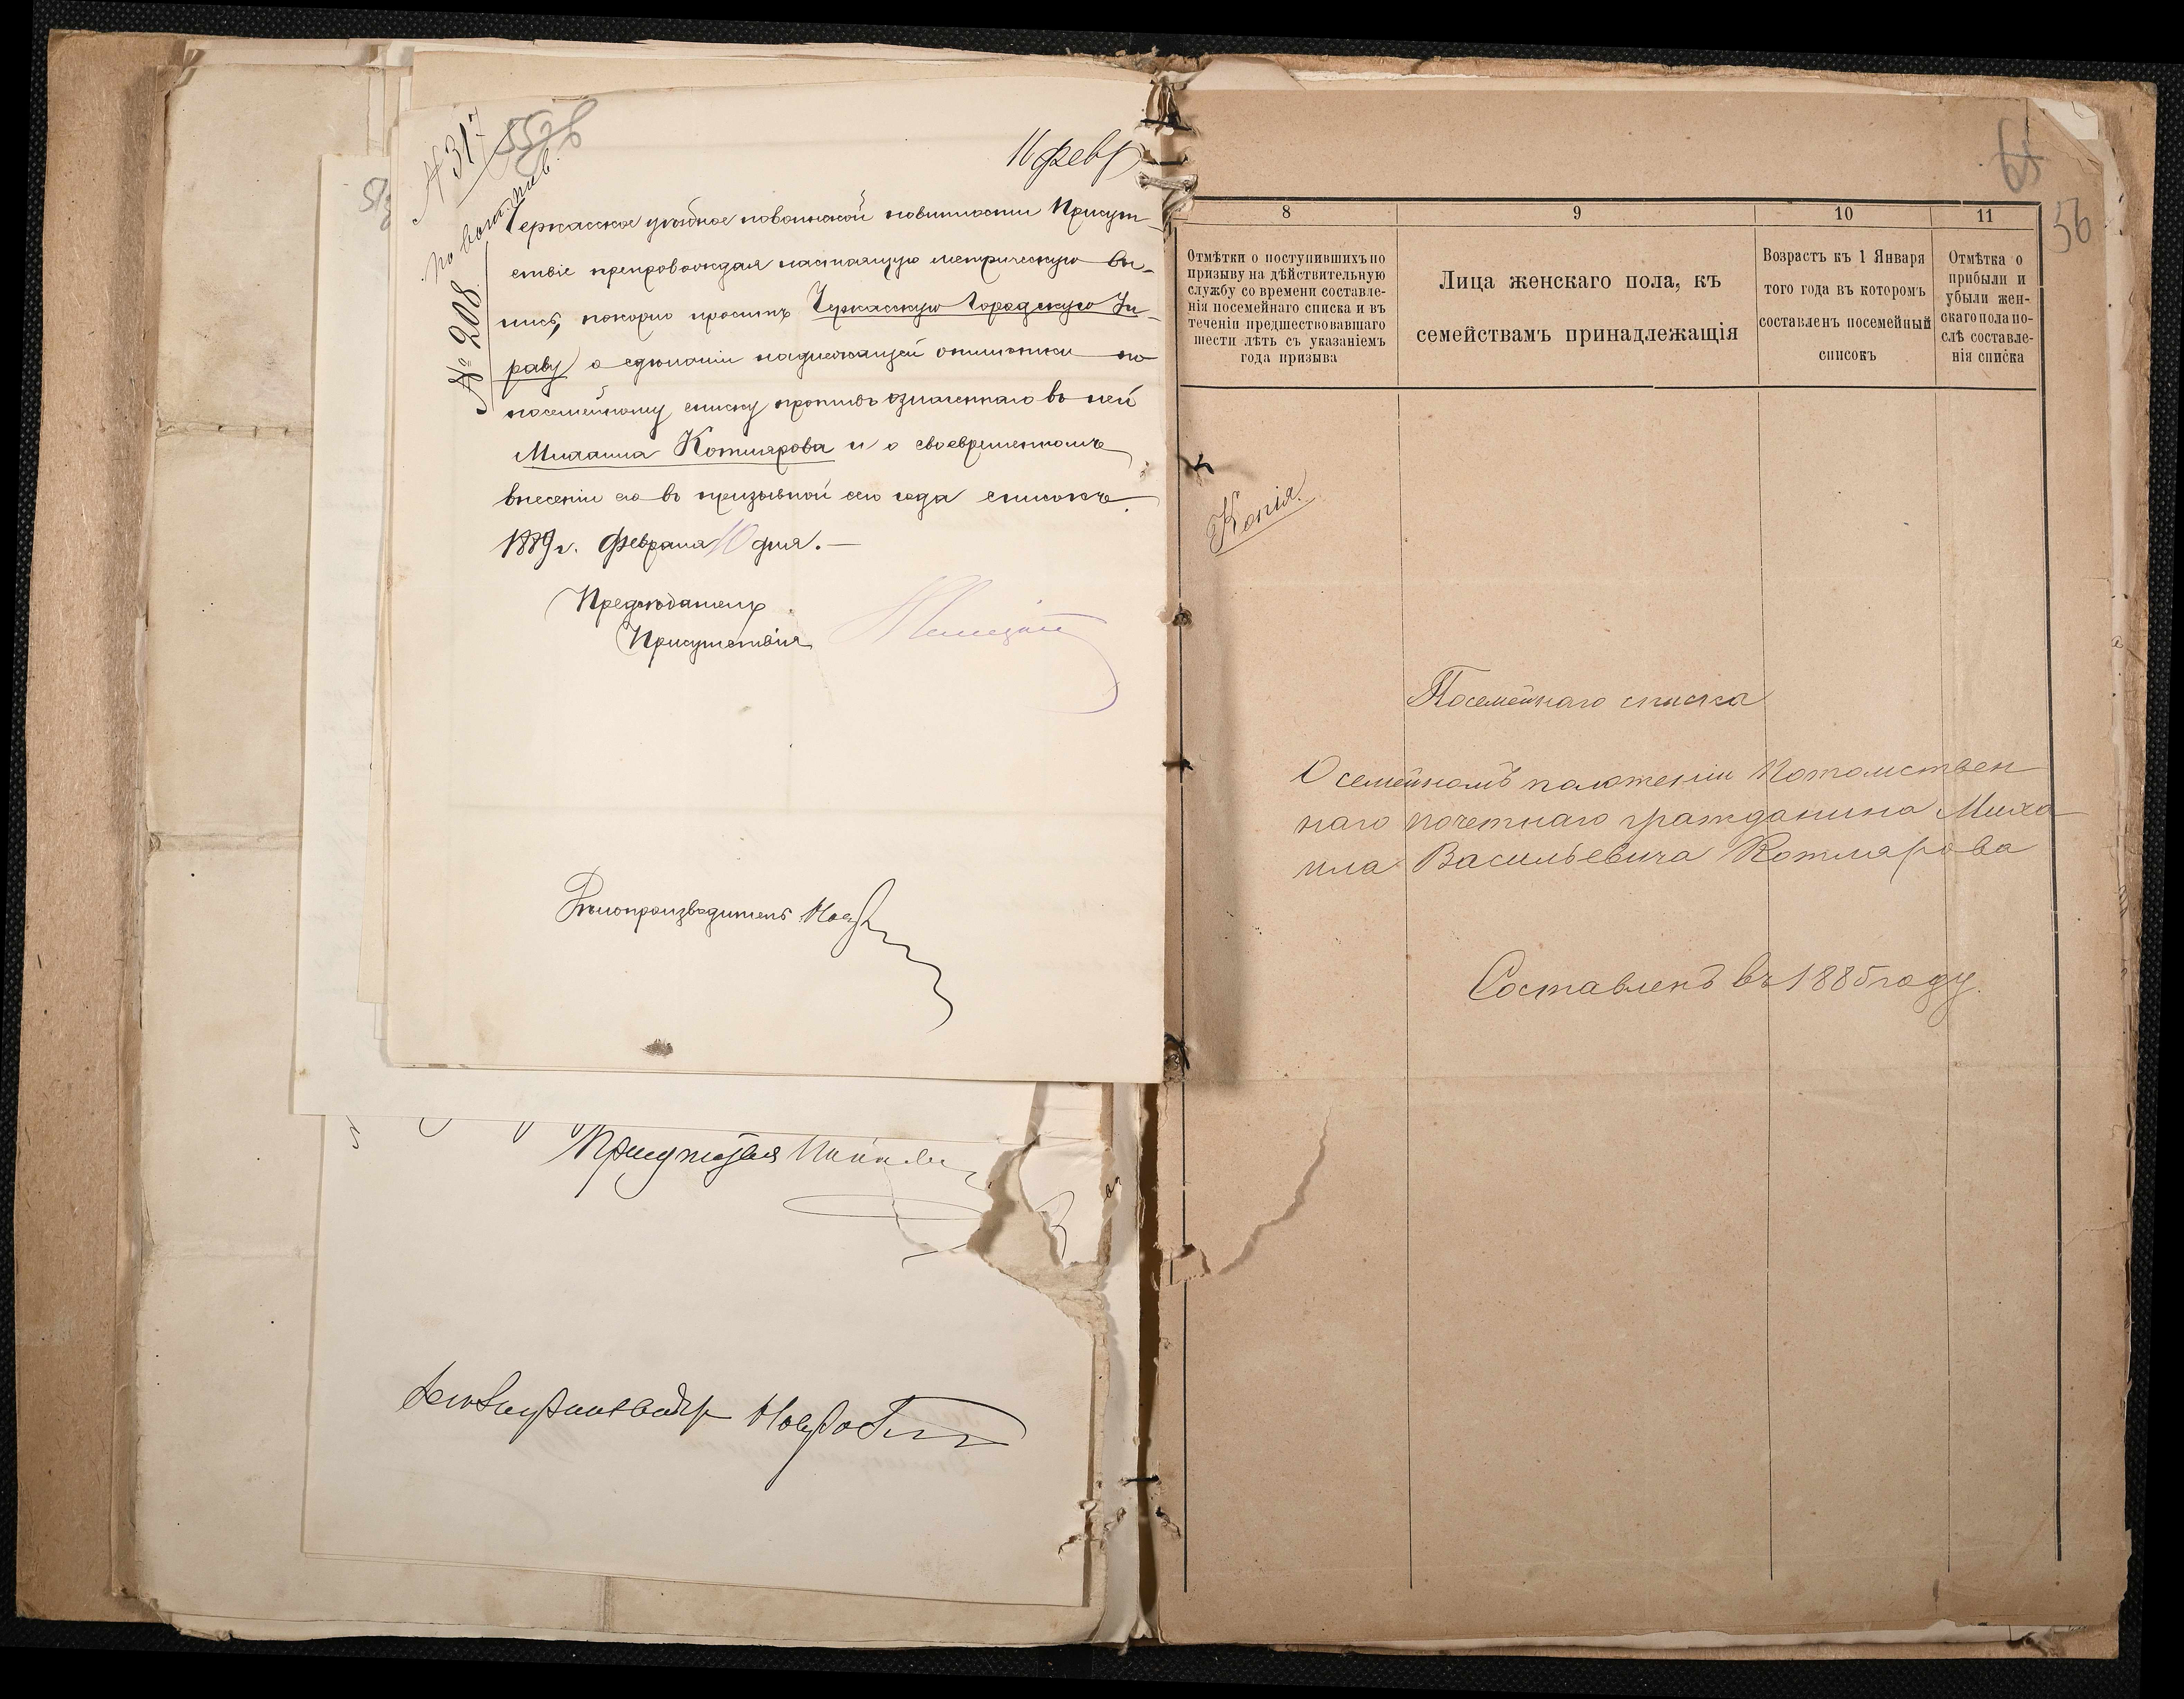 № 317
55об
по воин. пов.
№ 208
11 февр
Черкасское уѣздное по воинской повинности Присут-
ствіе препровождая настоящую метрическую вы-
пись, покорно проситъ Черкасскую Городскую Уп-
раву о сдѣланіи надлежащей отмѣтки по
посемейному списку противъ означеннаго въ ней
Михаила Котлярова и о своевременномъ
внесеніи его въ призывной сего года списокъ.
1889 г. Февраля 10 дня.—
Предсѣдатель
Присутствія
Дѣлопроизводитель
Присутствія
56
8
9
10
11
Отмѣтки о поступившихъ по
призыву на дѣйствительную
службу со времени составле-
нія посемейнаго списка и въ
теченіи предшествовавшаго
шести лѣтъ съ указаніемъ
года призыва
Лица женскаго пола, къ
семействамъ принадлежащія
Возрастъ къ 1 Января
того года въ которомъ
составленъ посемейный
списокъ
Отмѣтка о
прибыли и
убыли жен-
скаго пола по-
слѣ составле-
нія списка
Копія.
Посемейнаго списка
О семейномъ положеніи Потомствен
наго почетнаго гражданина Миха
ила Васильевича Котлярова
Составленъ въ 1885 году.